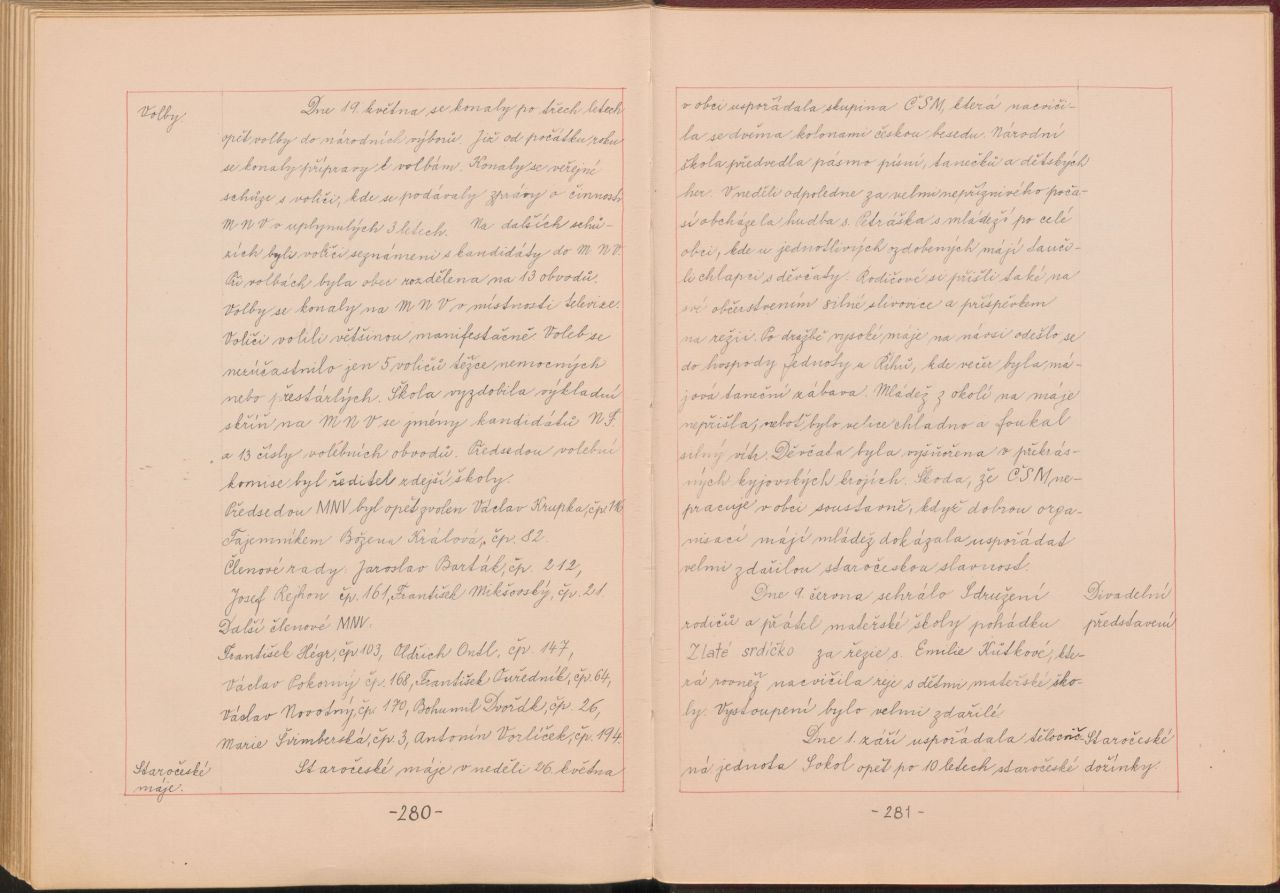 Volby
Dne 19 května se konaly po třech letech
opět volby do národních výborů. Již od počátku roku
se konaly přípravy k volbám. Konaly se veřejné
schůze s voliči, kde se podávaly zprávy o činnosti
MNV v uplynulých 3 letech. Na dalších schů-
zích byli voliči seznámeni s kandidáty do MNV.
Při volbách byla obec rozdělena na 13 obvodů.
Volby se konaly na MNV v místnosti televise.
Voliči volili většinou manifestačně. Voleb se
nezúčastnilo jen 5 voličů těžce nemocných
nebo přestárlých. Škola vyzdobila výkladní
skříň na MNV se jmény kandidátů N.F.
a 13 čísly volebních obvodů. Předsedou volební
komise byl ředitel zdejší školy.
Předsedou MNV byl opět zvolen Václav Krupka, čp. 116
Tajemníkem Božena Králová, čp. 82.
Členové rady: Jaroslav Barták, čp. 212,
Josef Rejhon čp. 161, František Mikšovský, čp. 21.
Další členové MNV.
František Hégr, čp 103, Oldřich Ontl, čp. 147,
Václav Pokorný čp. 168, František Ouředník, čp. 64,
Václav Novotný, čp. 170, Bohumil Dvořák, čp. 26,
Marie Švimberská, čp. 3, Antonín Vorlíček, čp. 194.
Staročeské
máje.
Staročeské máje v neděli 26. května
-280-
v obci uspořádala skupina ČSM, která nacviči-
la se dvěma kolonami českou besedu. Národní
škola předvedla pásmo písní, tanečků a dětských
her. V neděli odpoledne za velmi nepříznivého poča-
sí obcházela hudba s. Petráška s mládeží po celé
obci, kde u jednotlivých ozdobených májí tanči-
li chlapci s děvčaty. Rodičové si přišli také na
své občerstvením silné slivovice a příspěvkem
na režii. Po dražbě vysoké máje na návsi odešlo se
do hospody Jednoty u Říhů, kde večer byla má-
jová taneční zábava. Mládež z okolí na máje
nepřišla, neboť bylo velice chladno a foukal
silný vítr. Děvčata byla vyšňořena v překrás-
ných kyjovských krojích. Škoda, že ČSM, ne-
pracuje v obci soustavně, když dobrou orga-
nisací májí mládež dokázala, uspořádat
velmi zdařilou staročeskou slavnost.
Dne 9. června sehrálo Sdružení
rodičů a přátel mateřské školy pohádku
Zlaté srdíčko za režie s. Emilie Hůtkové, kte-
rá rovněž nacvičila reje s dětmi mateřské ško-
ly. Vystoupení bylo velmi zdařilé
Divadelní
představení
Dne 1. září uspořádala tělocvič-
ná jednota Sokol opět po 10 letech staročeské
Staročeské
dožínky.
-281-